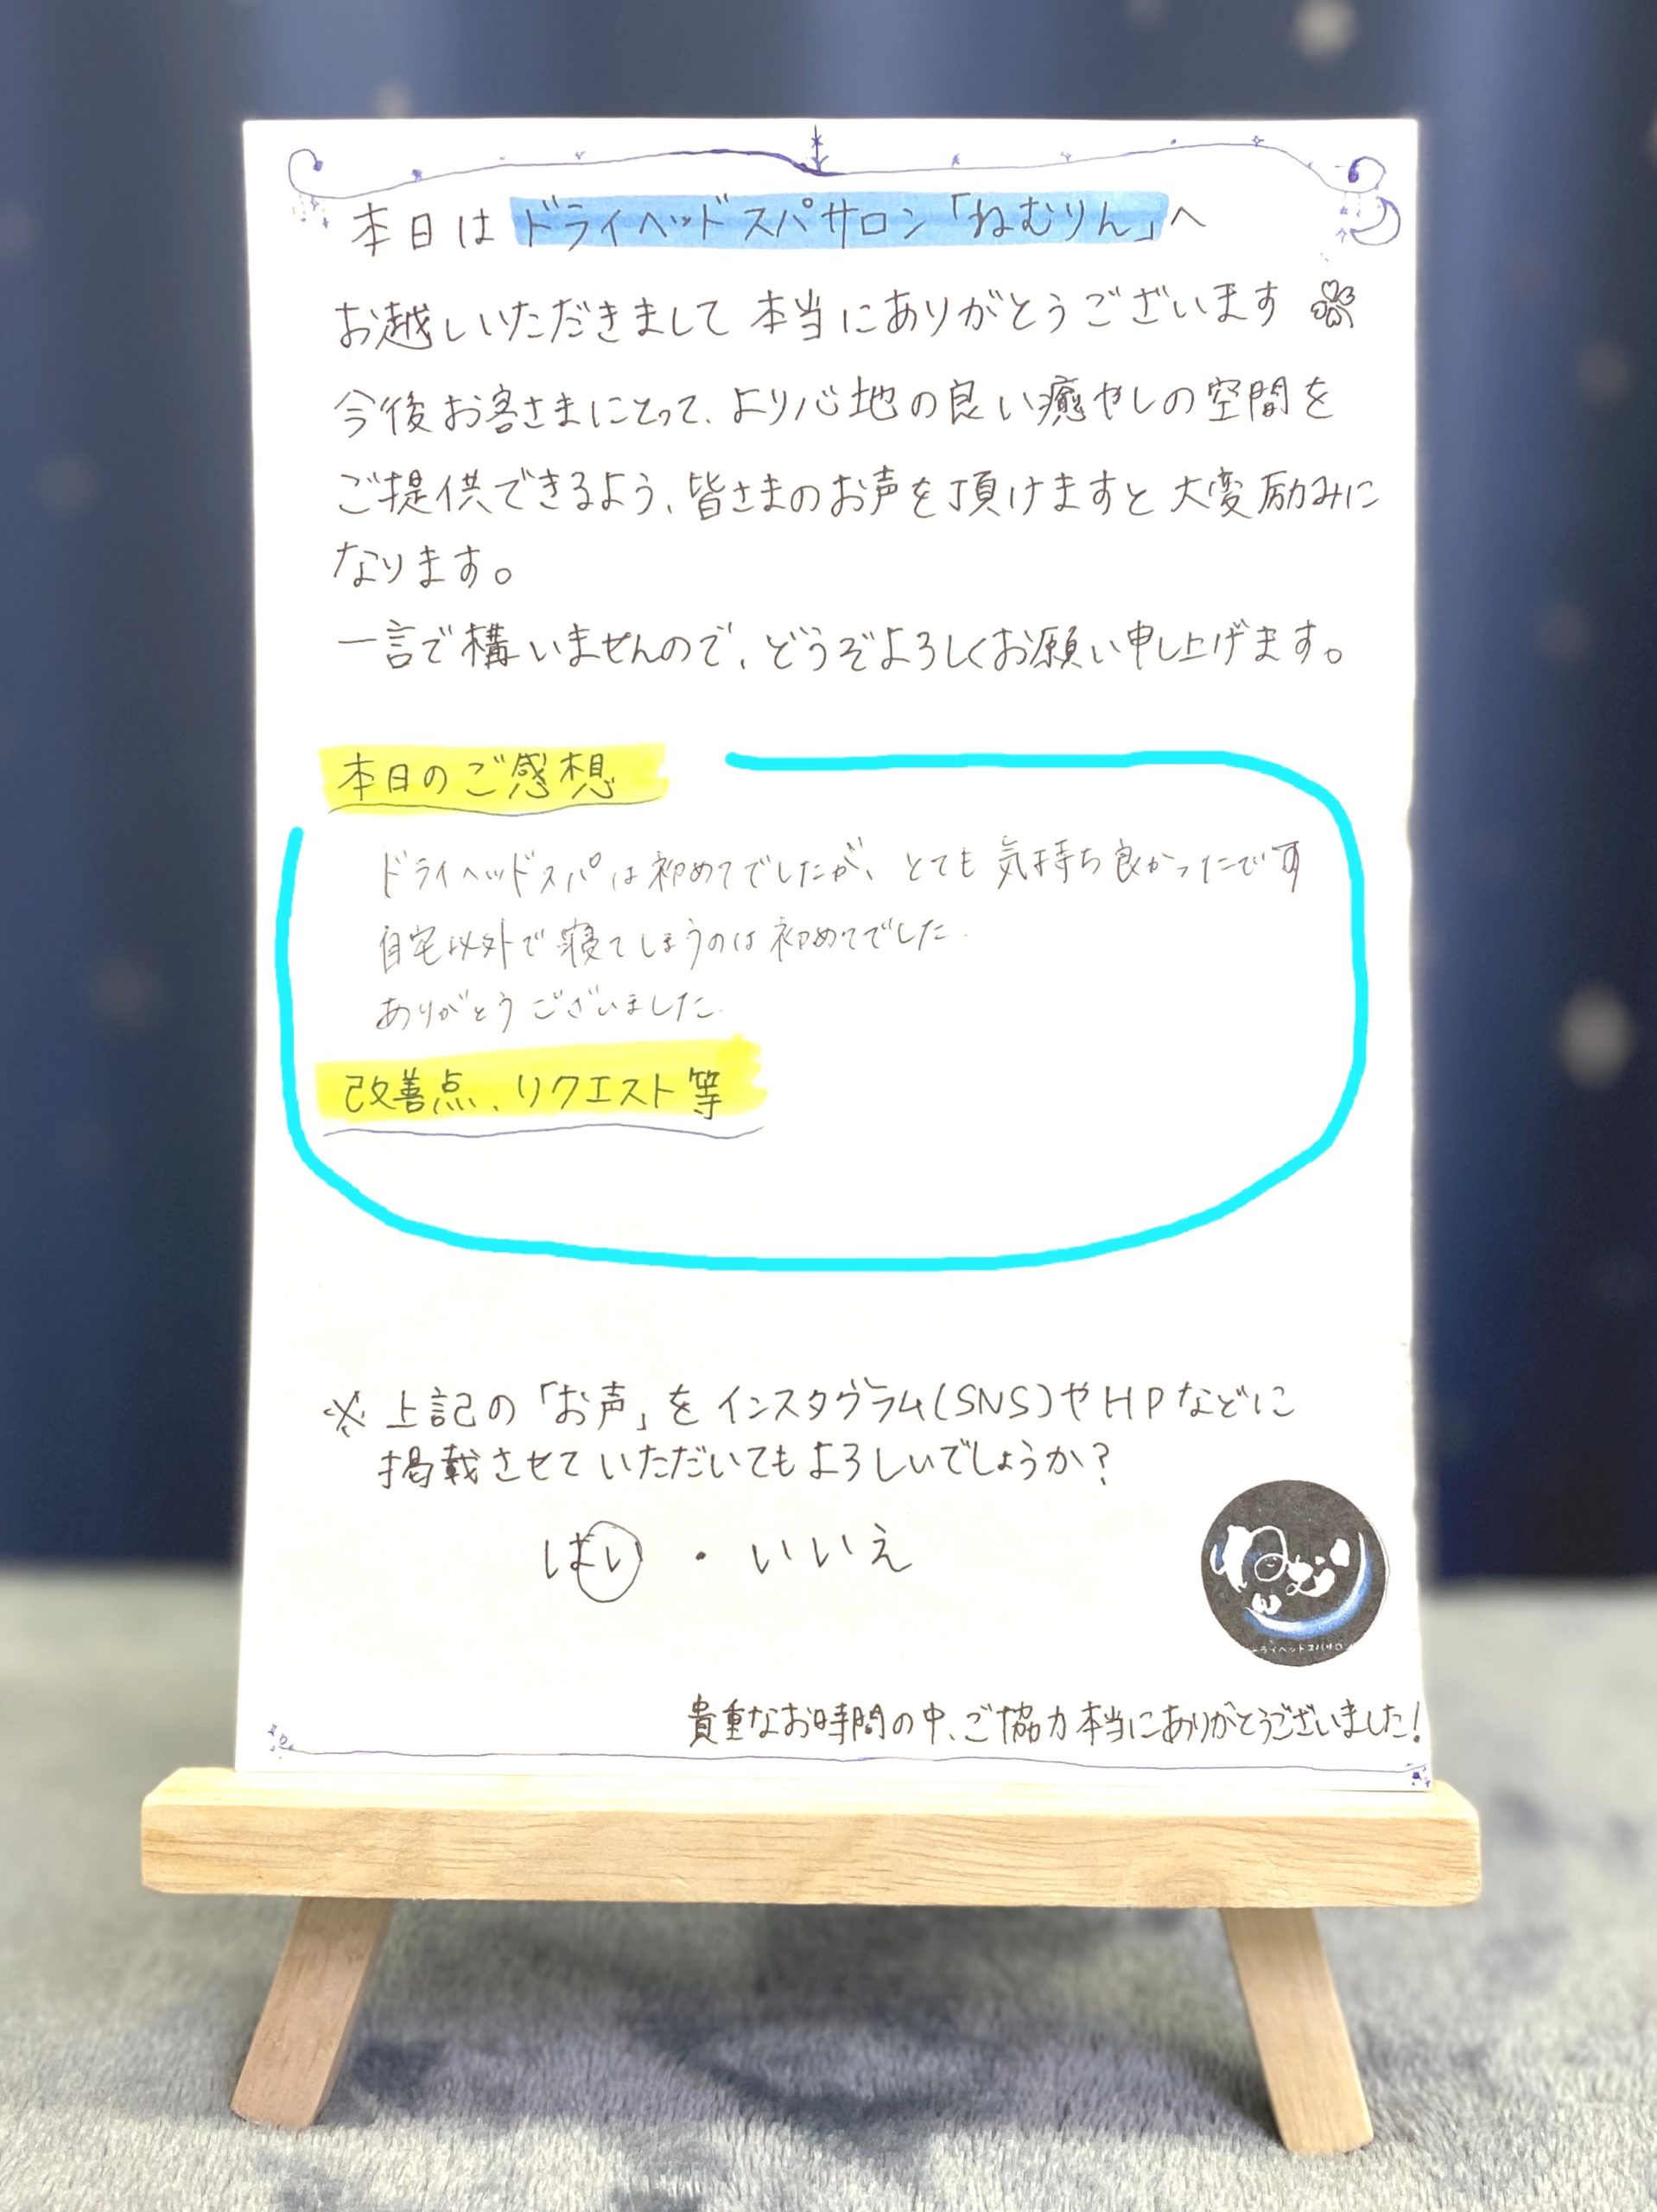 本日は ドライヘッドスパサロン「ねむりん」へ
お越しいただきまして 本当にありがとうございます
今後お客さまにとって、より心地の良い癒やしの空間を
ご提供できるよう、皆さまのお声を頂けますと大変励みに
なります。
一言で構いませんので、どうぞよろしくお願い申し上げます。
本日のご感想
ドライヘッドスパは初めてでしたが、とても気持ち良かったです
自宅以外で寝てしまうのは初めてでした.
ありがとうございました.
改善点、リクエスト等
※上記の「お声」をインスタグラム(SNS)やHPなどに
掲載させていただいてもよろしいでしょうか?
はい ・ いいえ
ねむりん
ライヘッドスパサロン
貴重なお時間の中、ご協力本当にありがとうございました!